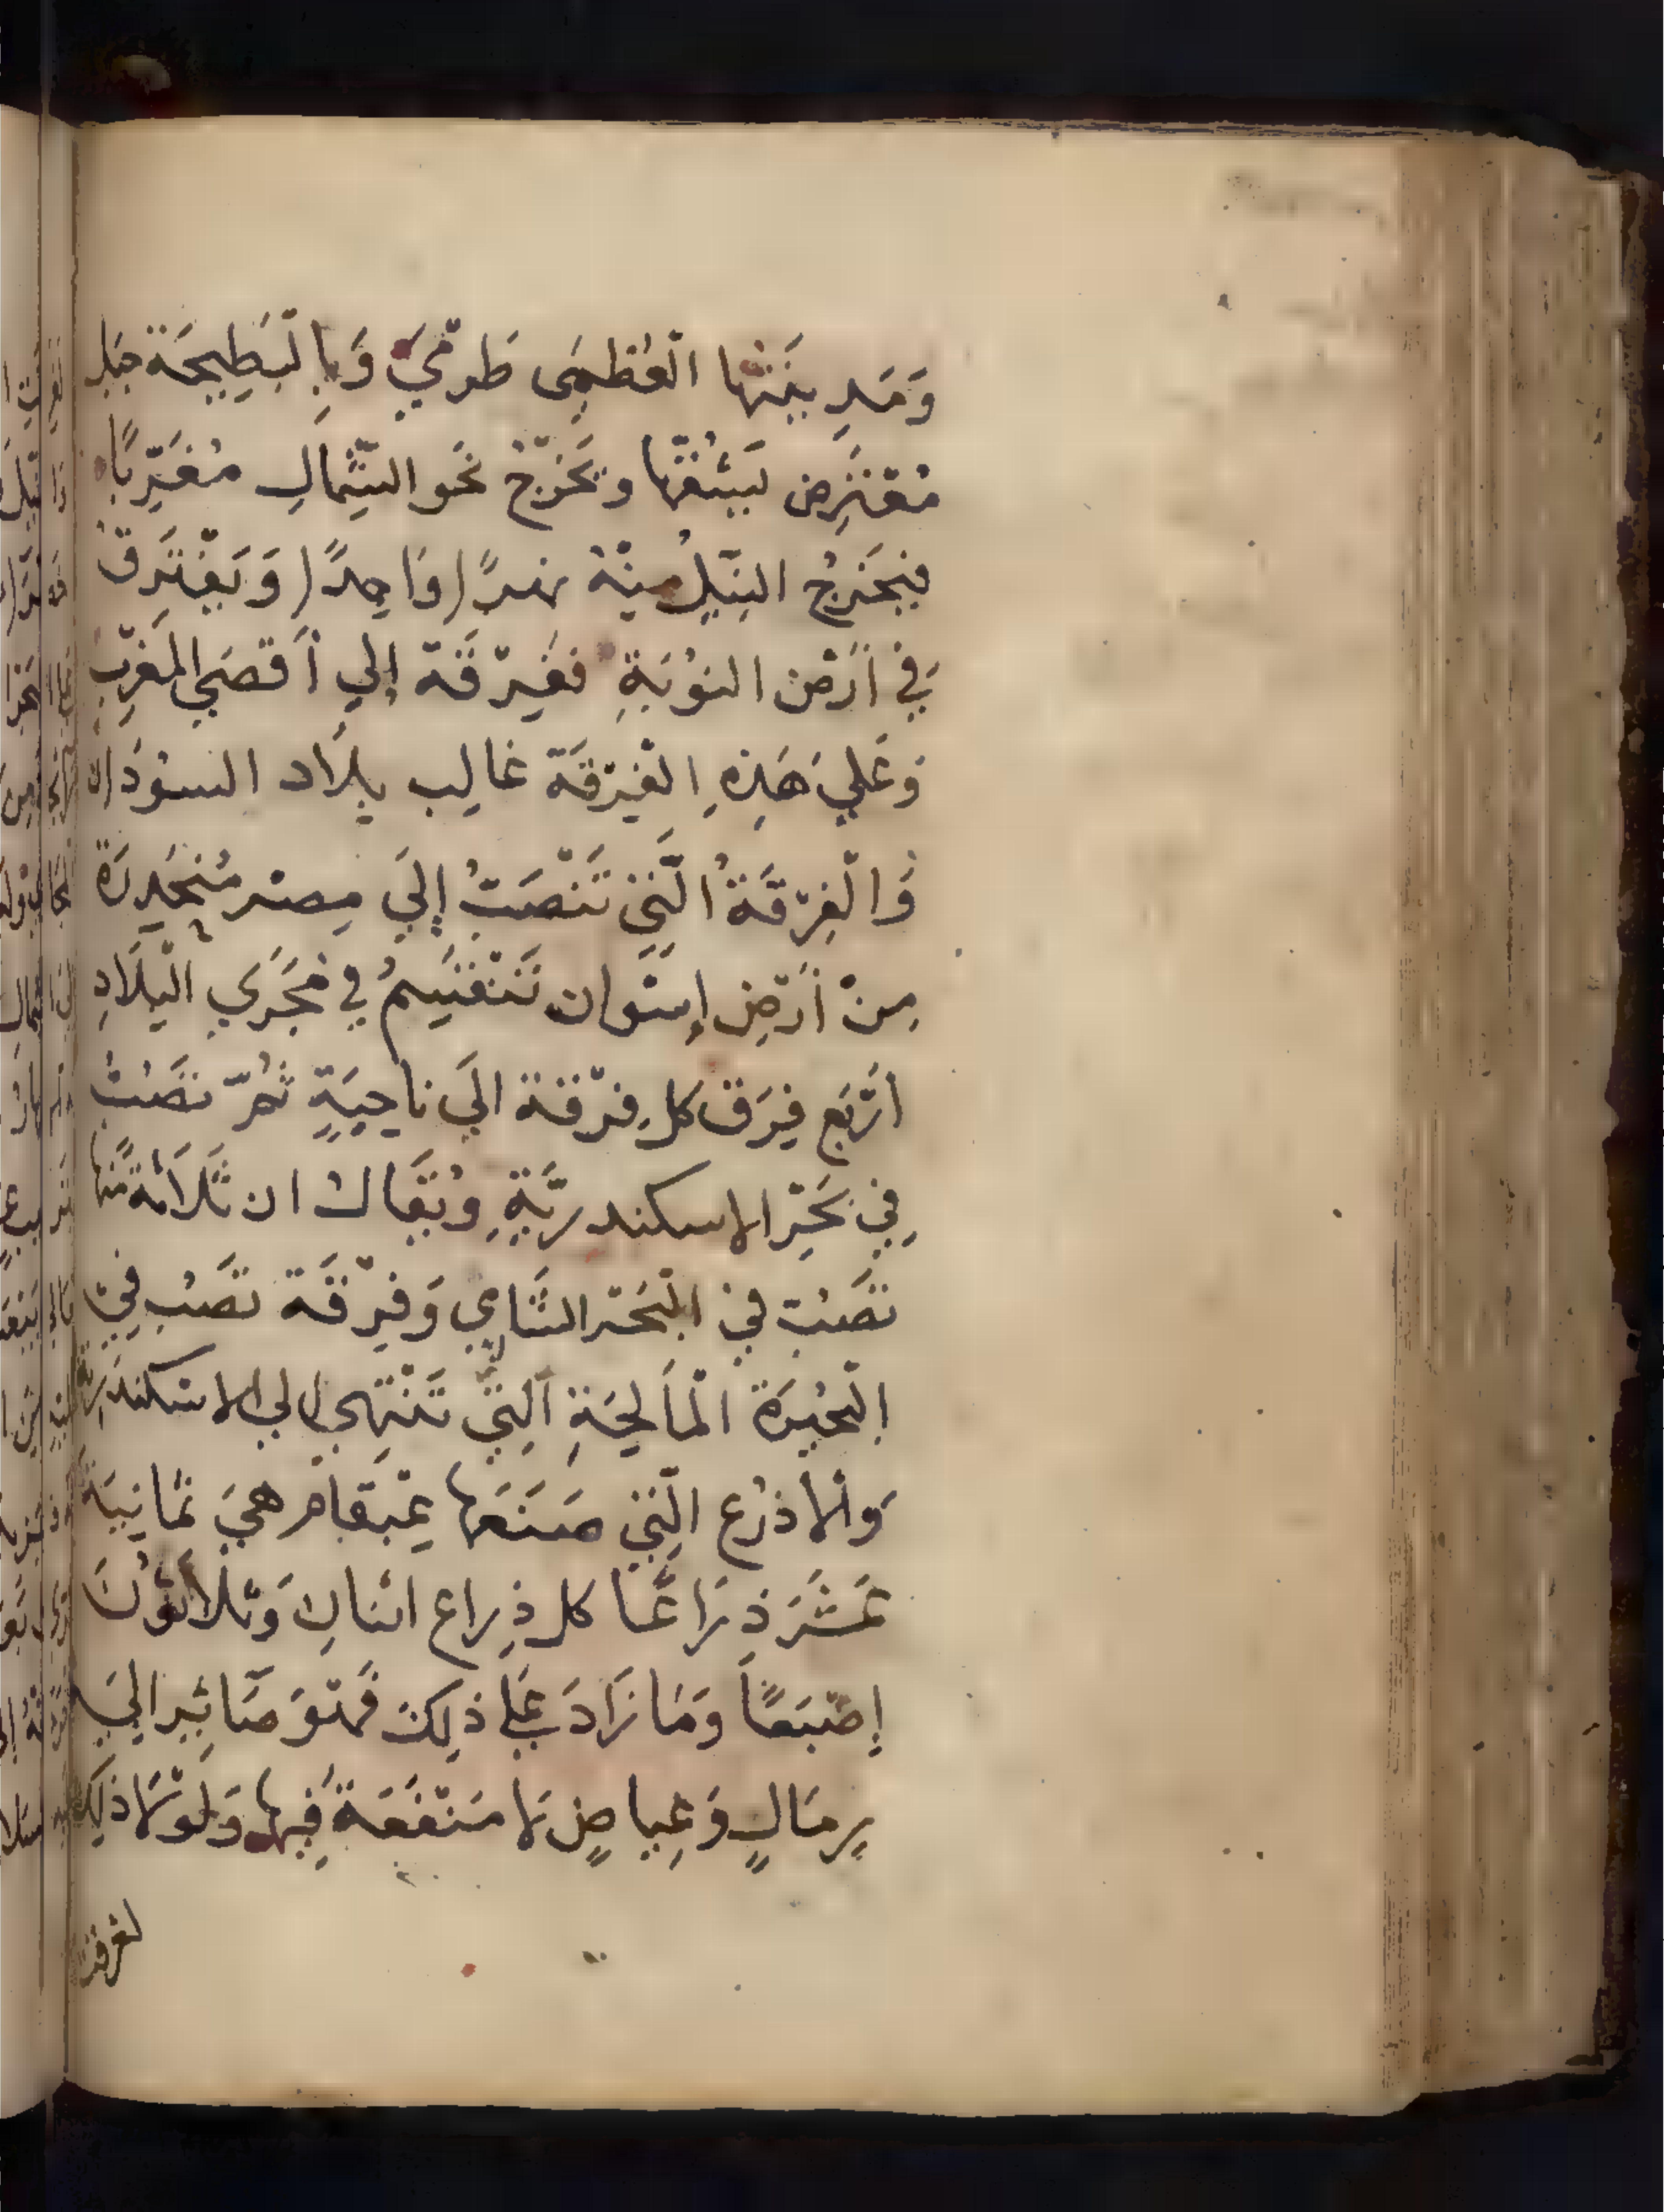 وَمَدِينَتُها الْعُظمَى طَرمَيّ وَبِالْبَطِيحَة جَبَل
مُعْتَرِض يَشُقّها ويَخَرّجُ نَحو الشِّمالِ مُغَرِّبًا
فيَخرُجُ النِيلُ مِنْهُ نهرًا وَاحِدًا وَيَفْتَرَقُ
في أَرْض النوْبَةِ ففِرْقَة إلي أَقصَي المَغرِبْ
وَعَليَ هَذِهِ الفِرْقَة غالِب بِلاَد السودَان
وَالْفِرْقَةُ الَّتِي تَنْصَبُّ إليَ مِصْر مُنحَدِرَةٌ
مِنْ أَرْضِ إسْوان تَنْقَسِمُ في مَجْرَي الْبِلاَدِ
أَرْبَع فِرَق كل فِرْقة الَي ناحِيَةٍ ثُمّ تصَبُّ
فِي بَحْرِ الاسكندريَّةِ وُيقَالُ ان ثَلاَثَة مِّنها
تصَبُّ فِي الْبَحْر الشَّامِي وَفِرْقَة تصَبُ فِي
الْبُحَيرَة الْمَالِحَةِ الَّتِي تَنْتَهِي الي الاسْكندَرِيّة
وَالاذرُع الَّتِي صَنَعَها يَمْبقام هيَ ثمانِيَة
عَشَرَ ذرَاعًا كل ذِراع اثنانِ وَثلاثُونَ
إصْبَعًا وَمَا زَادَ عَلي ذلِكَ فَهْوَ صَائِر الَيَ
رِمَالٍ وَغِياضٍ لاَ مَنْفَعَةَ فِيها وَلَوْلاَ ذَلِكَ
لغرقت